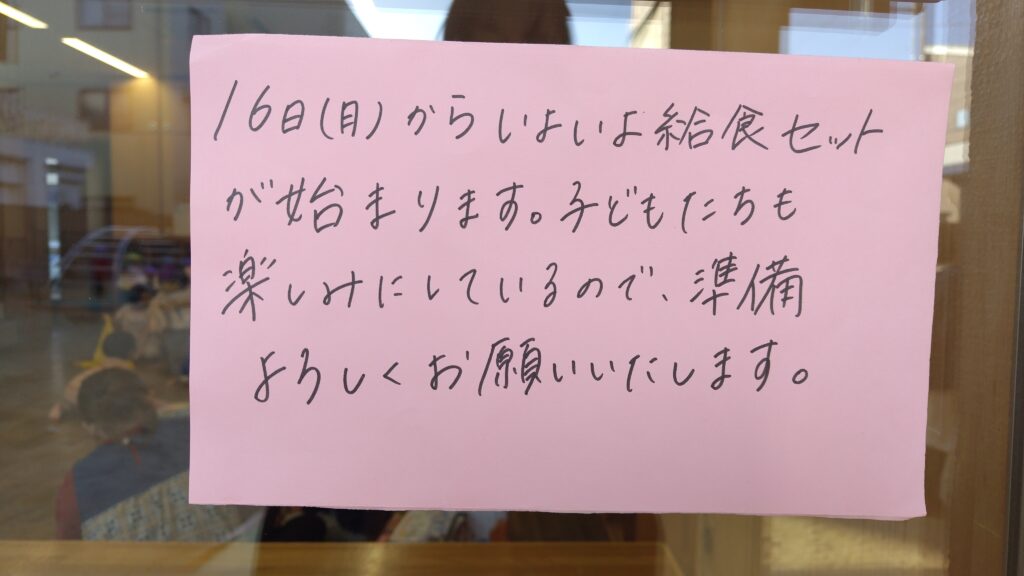 16日(月)からいよいよ給食セット
が始まります。子どもたちも
楽しみにしているので、準備
よろしくお願いいたします。